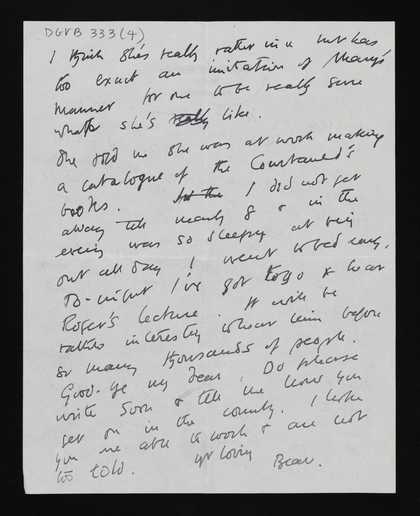 DGVB 333 (4)
I think she's really rather nice but has
too exact an imitation of Mary's
manner for me to be really sure
what she's really like.
She told me she was at work making
a catalogue of the Courtauld's
books. I did not get
away till nearly 8 & in the
evening was so sleepy at being
out all day I went to bed early.
To-night I've got to go & hear
Roger's lecture. It will be
rather interesting to hear him before
so many thousands of people.
Good-bye my Dear. Do please
write soon & tell me how you
get on in the country. I hope
you are able to work & are not
too cold. yr loving Bear.